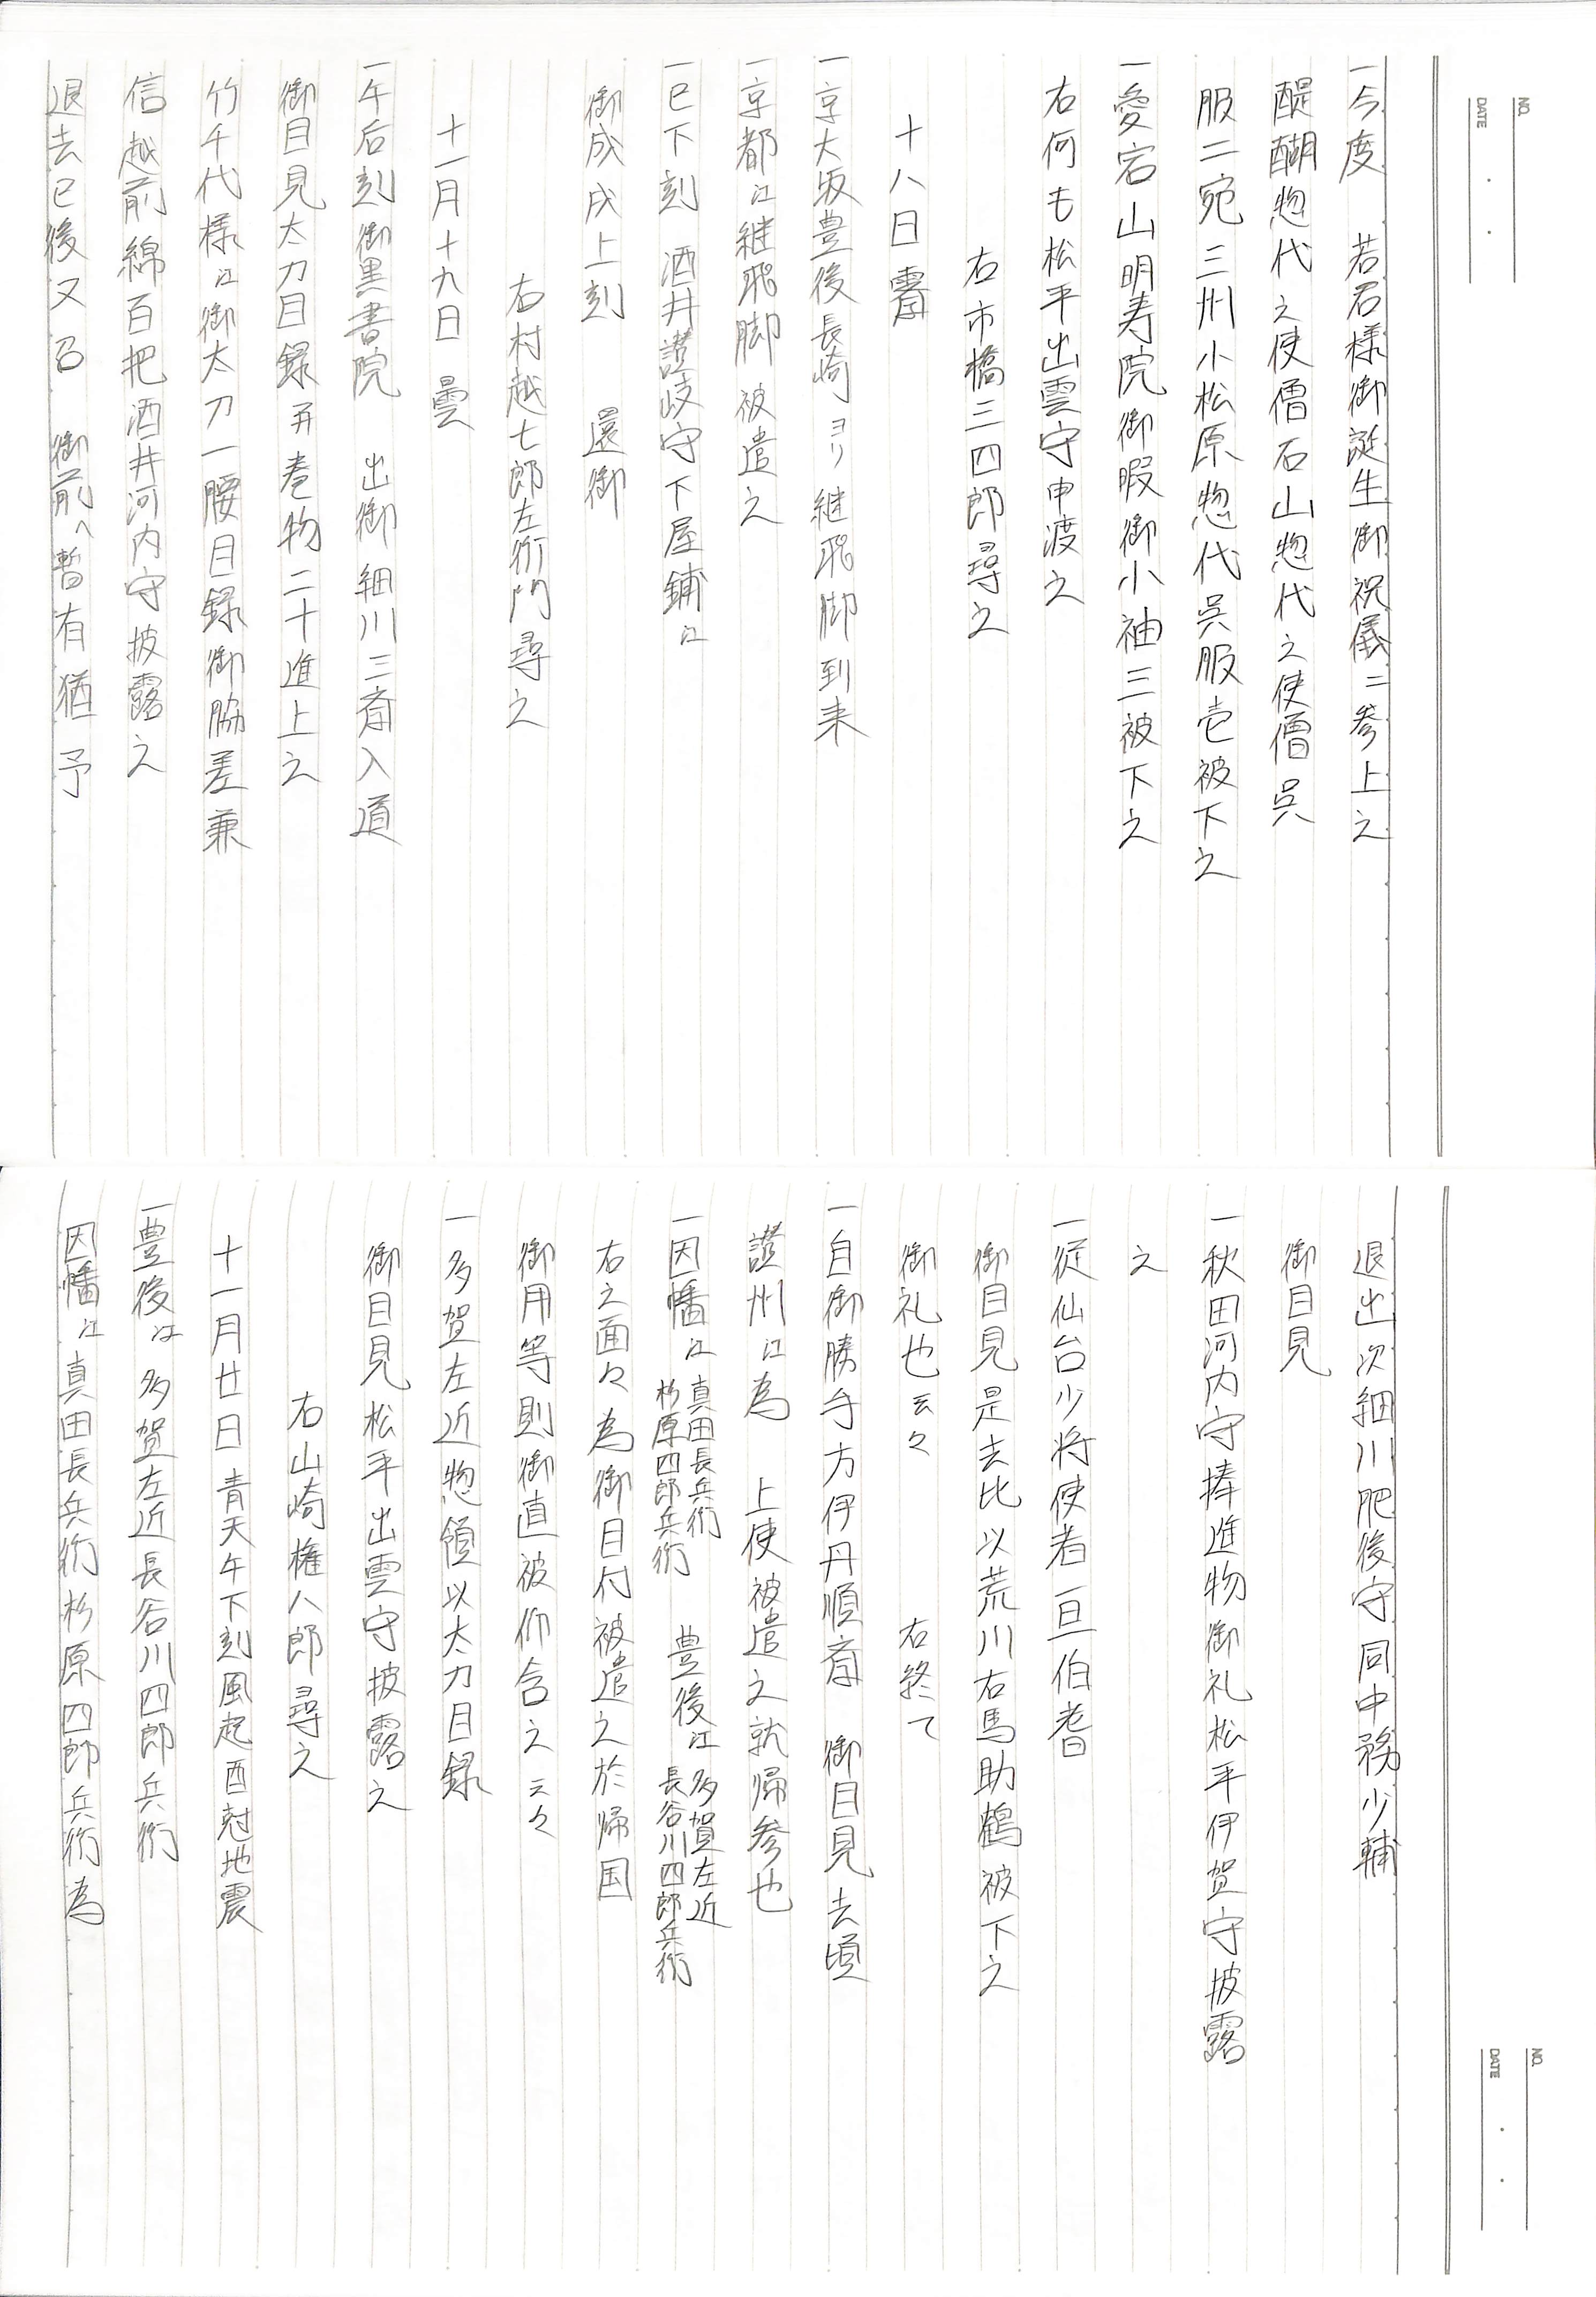 NO.
DATE
一今度　若君様御誕生御祝儀ニ参上之
醍醐惣代之使僧石山惣代之使僧呉
服二宛三州小松原惣代呉服壱被下之
一愛宕山明寿院御暇御小袖三被下之
右何も松平出雲守申渡之
右市橋三四郎尋之
十八日
一京大坂豊後長崎ヨリ継飛脚到来
一京都江継飛脚被遣之
一巳下刻　酒井讃岐守下屋鋪江
御成戌上刻　還御
右村越七郎左衛門尋之
十一月十九日　曇
一午后刻御黒書院　出御細川三斎入道
御目見太刀目録并巻物二十進上之
竹千代様江御太刀一腰目録御脇差兼
信越前綿百把酒井河内守披露之
退去已後又召　御前へ暫有猶予
NO.
DATE
退出次細川肥後守同中務少輔
御目見
一秋田河内守捧進物御礼松平伊賀守披露
之
一従仙台少将使者亘伯耆
御目見是去比以荒川右馬助鶴被下之
御礼也云々　右終て
一自御勝手方伊丹順斎　御目見去頃
讃州江為　上使被遣之就帰参也
一因幡江　真田長兵衛　杉原四郎兵衛　豊後江　多賀左近　長谷川四郎兵衛
右之面々為御目付被遣之於帰国
御用等則御直被仰含之云々
一多賀左近惣領以太刀目録
御目見松平出雲守披露之
右山崎権八郎尋之
十一月廿日　青天午下刻風起酉尅地震
一豊後江　多賀左近長谷川四郎兵衛
因幡江真田長兵衛杉原四郎兵衛為